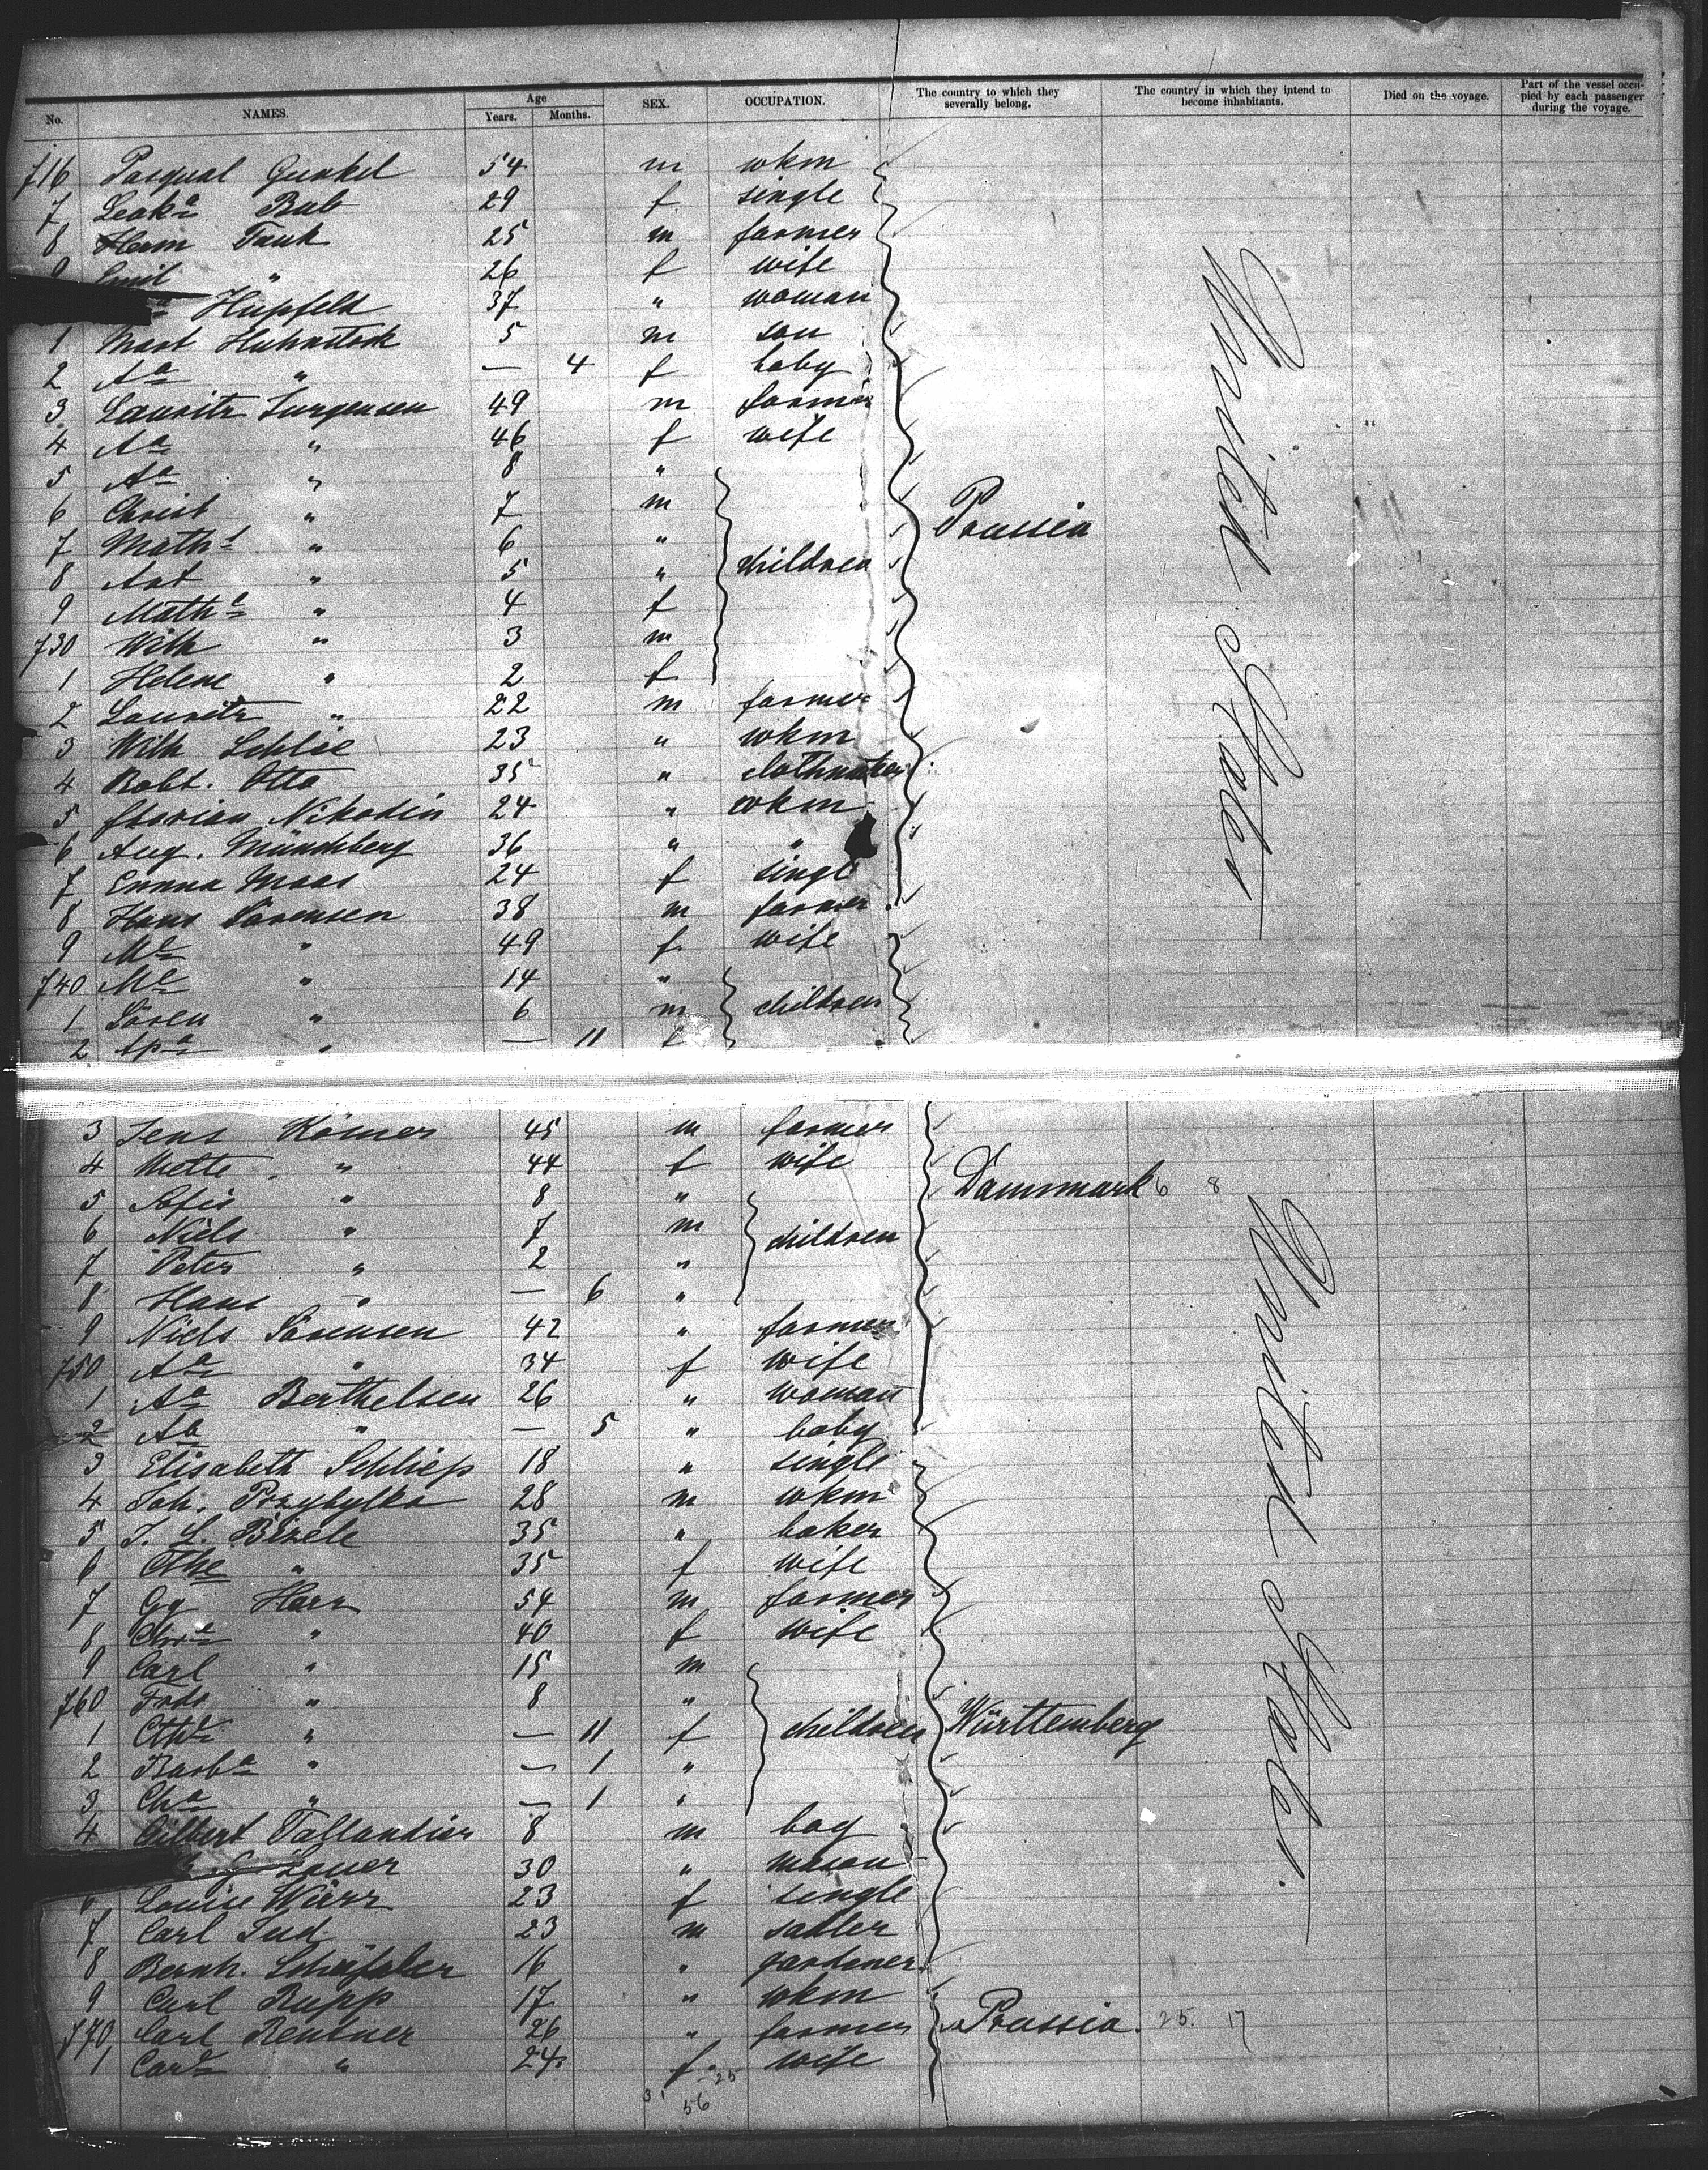 No. NAMES. Age Years. Months. SEX. OCCUPATION. The country to which they severally belong. The country in which they intend to become inhabitants. Died on the voyage. Part of the vessel occupied by each passenger during the voyage.
716 Pasqual Gunkel 54 m wkm
7 Leoka Bub 29 f single
8 Herm Tank 25 m farmer
9 Emil " 26 f wife
Hupfeld 37 " woman
1 Mart Huhnstock 5 m son
2 Aa " — 4 f baby
3 Lauritz Jurgensen 49 m farmer
4 Aa " 46 f wife
5 Aa " 8 "
6 Christ " 7 m
7 Maths " 6 " Prussia
8 Ant " 5 " children
9 Matha " 4 f
730 Wilh " 3 m
1 Helene " 2 f
2 Lauritz " 22 m farmer
3 Wilh Schlie 23 " wkm
4 Robt. Otto 35 " clothmaker
5 Florian Nikodin 24 " wkm
6 Aug. Münchberg 36 " "
7 Emma Maas 24 f single
8 Hans Sörensen 38 m farmer
9 Me " 49 f wife
740 Me " 14 "
1 Sören " 6 m children
2 Apa " — 11 f
United States
3 Jens Römer 45 m farmer
4 Mette " 44 f wife
5 Sofie " 8 " Dannmark 6 8
6 Niels " 7 m children
7 Peter " 2 "
8 Hans " — 6 "
9 Niels Sörensen 42 " farmer
750 Aa " 34 f wife
1 Aa Berthelsen 26 " woman
2 Aa " — 5 " baby
3 Elisabeth Schliep 18 " single
4 Joh. Przybylka 28 m wkm
5 J. L. Bizele 35 " baker
6 Cthe " 35 f wife
7 Gg Harr 54 m farmer
8 Chre " 40 f wife
9 Carl " 15 m
760 Frdr " 8 "
1 Cthe " — 11 f children Württemberg
2 Barba " — 1 "
3 Cha " — 1 "
4 Gilbert Tallandier 8 m boy
Zauer 30 " mason
6 Louise Würr 23 f single
7 Carl Jud 23 m sadler
8 Bernh. Schäfaler 16 " gardener
9 Carl Rupp 17 " wkm
770 Carl Rentner 26 " farmer Prussia. 25. 17
1 Care " 24 f. wife
31 25
56
United States